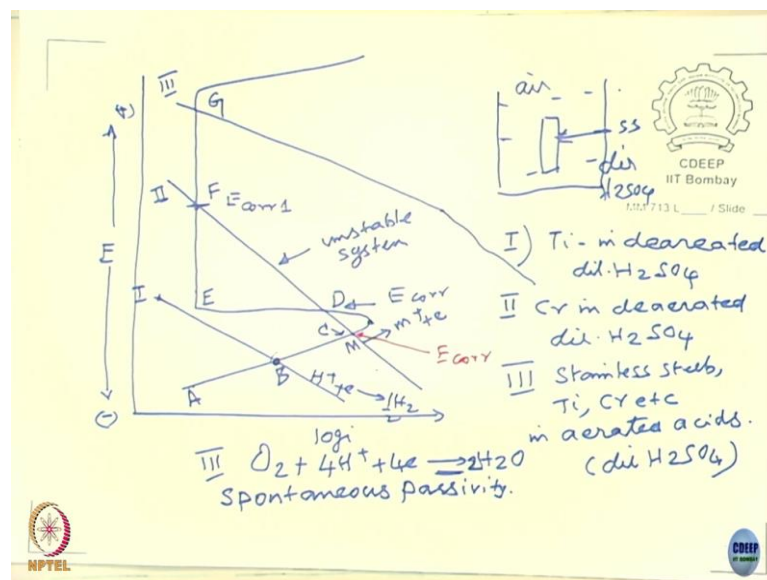 III
G
(+)
II
F Ecorr1
unstable
system
E
I
E
D Ecorr
C
M
m⁺+e
Ecorr
B
H⁺+e → ½H2
A
(-)
logi
III O2 + 4H⁺ + 4e → 2H2O
Spontaneous passivity.
air
ss
dil
H2SO4
CDEEP
IIT Bombay
MM 713 L____ / Slide ___
I) Ti - in deareated
dil. H2SO4
II Cr in deaerated
dil. H2SO4
III Stainless steels,
Ti, Cr etc
in aerated acids.
(dil H2SO4)
NPTEL
CDEEP
IIT BOMBAY